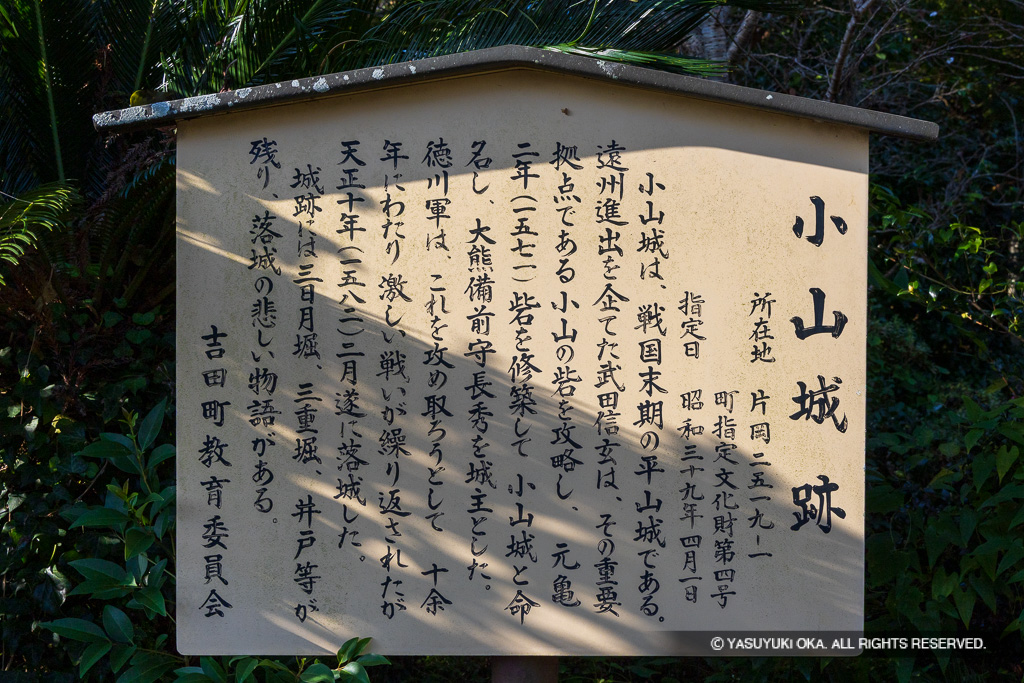 小山城跡
所在地 片岡二五一九ー一
町指定文化財第四号
指定日 昭和三十九年四月一日
小山城は、戦国末期の平山城である。
遠州進出を企てた武田信玄は、その重要
拠点である小山の砦を攻略し、元亀
二年（一五七一）砦を修築して小山城と命
名し、大熊備前守長秀を城主とした。
徳川軍は、これを攻め取ろうとして十余
年にわたり激しい戦いが繰り返されたが
天正十年（一五八二）二月遂に落城した。
城跡には三日月堀、三重堀、井戸等が
残り、落城の悲しい物語がある。
吉田町教育委員会
© YASUYUKI OKA. ALL RIGHTS RESERVED.